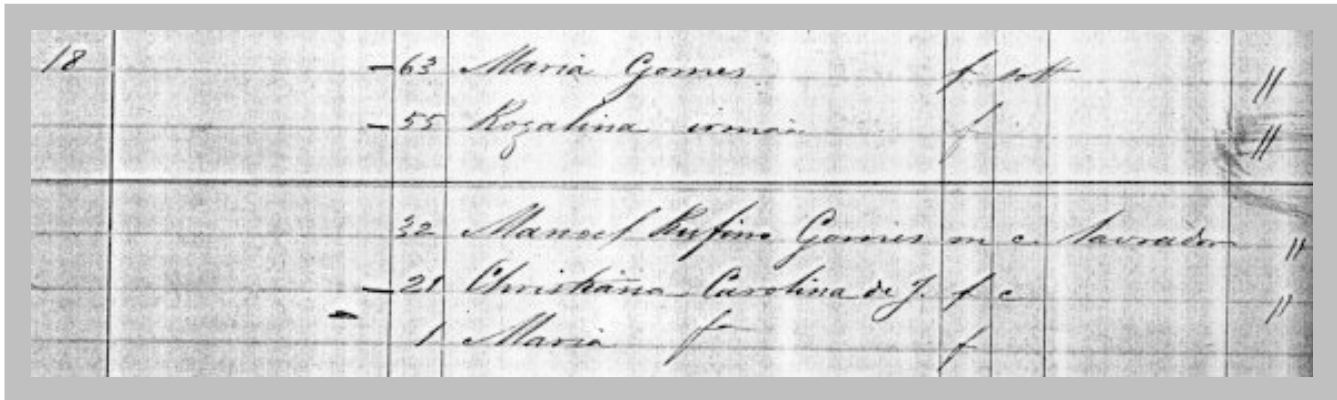 18 63 Maria Gomes f solt "
55 Rozalina irman f "
32 Manoel Rufino Gomes m c. lavrador "
21 Christianna Carolina de J. f c "
1 Maria f f